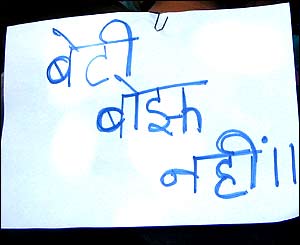 बेटी
बोझ
नहीं।।